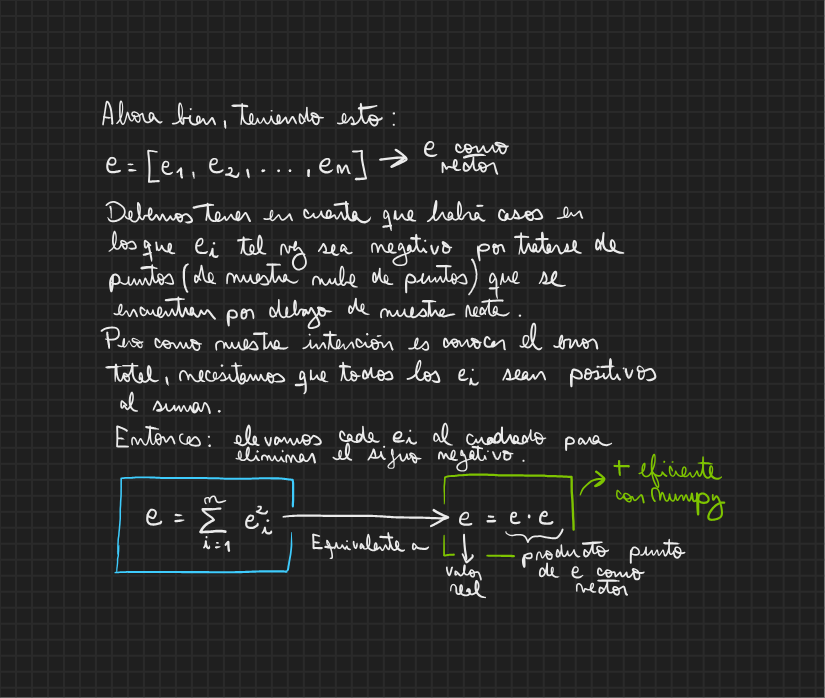 Ahora bien, teniendo esto:
e = [e₁, e₂, ..., eₘ] → e como vector
Debemos tener en cuenta que habrá casos en
los que eᵢ tal vez sea negativo por tratarse de
puntos (de nuestra nube de puntos) que se
encuentran por debajo de nuestra recta.
Pero como nuestra intención es conocer el error
total, necesitamos que todos los eᵢ sean positivos
al sumar.
Entonces: elevamos cada eᵢ al cuadrado para
eliminar el signo negativo.
+ eficiente
con numpy
e = ∑ᵢ₌₁ᵐ eᵢ² → e = e · e
Equivalente a
valor
real
producto punto
de e como
vector